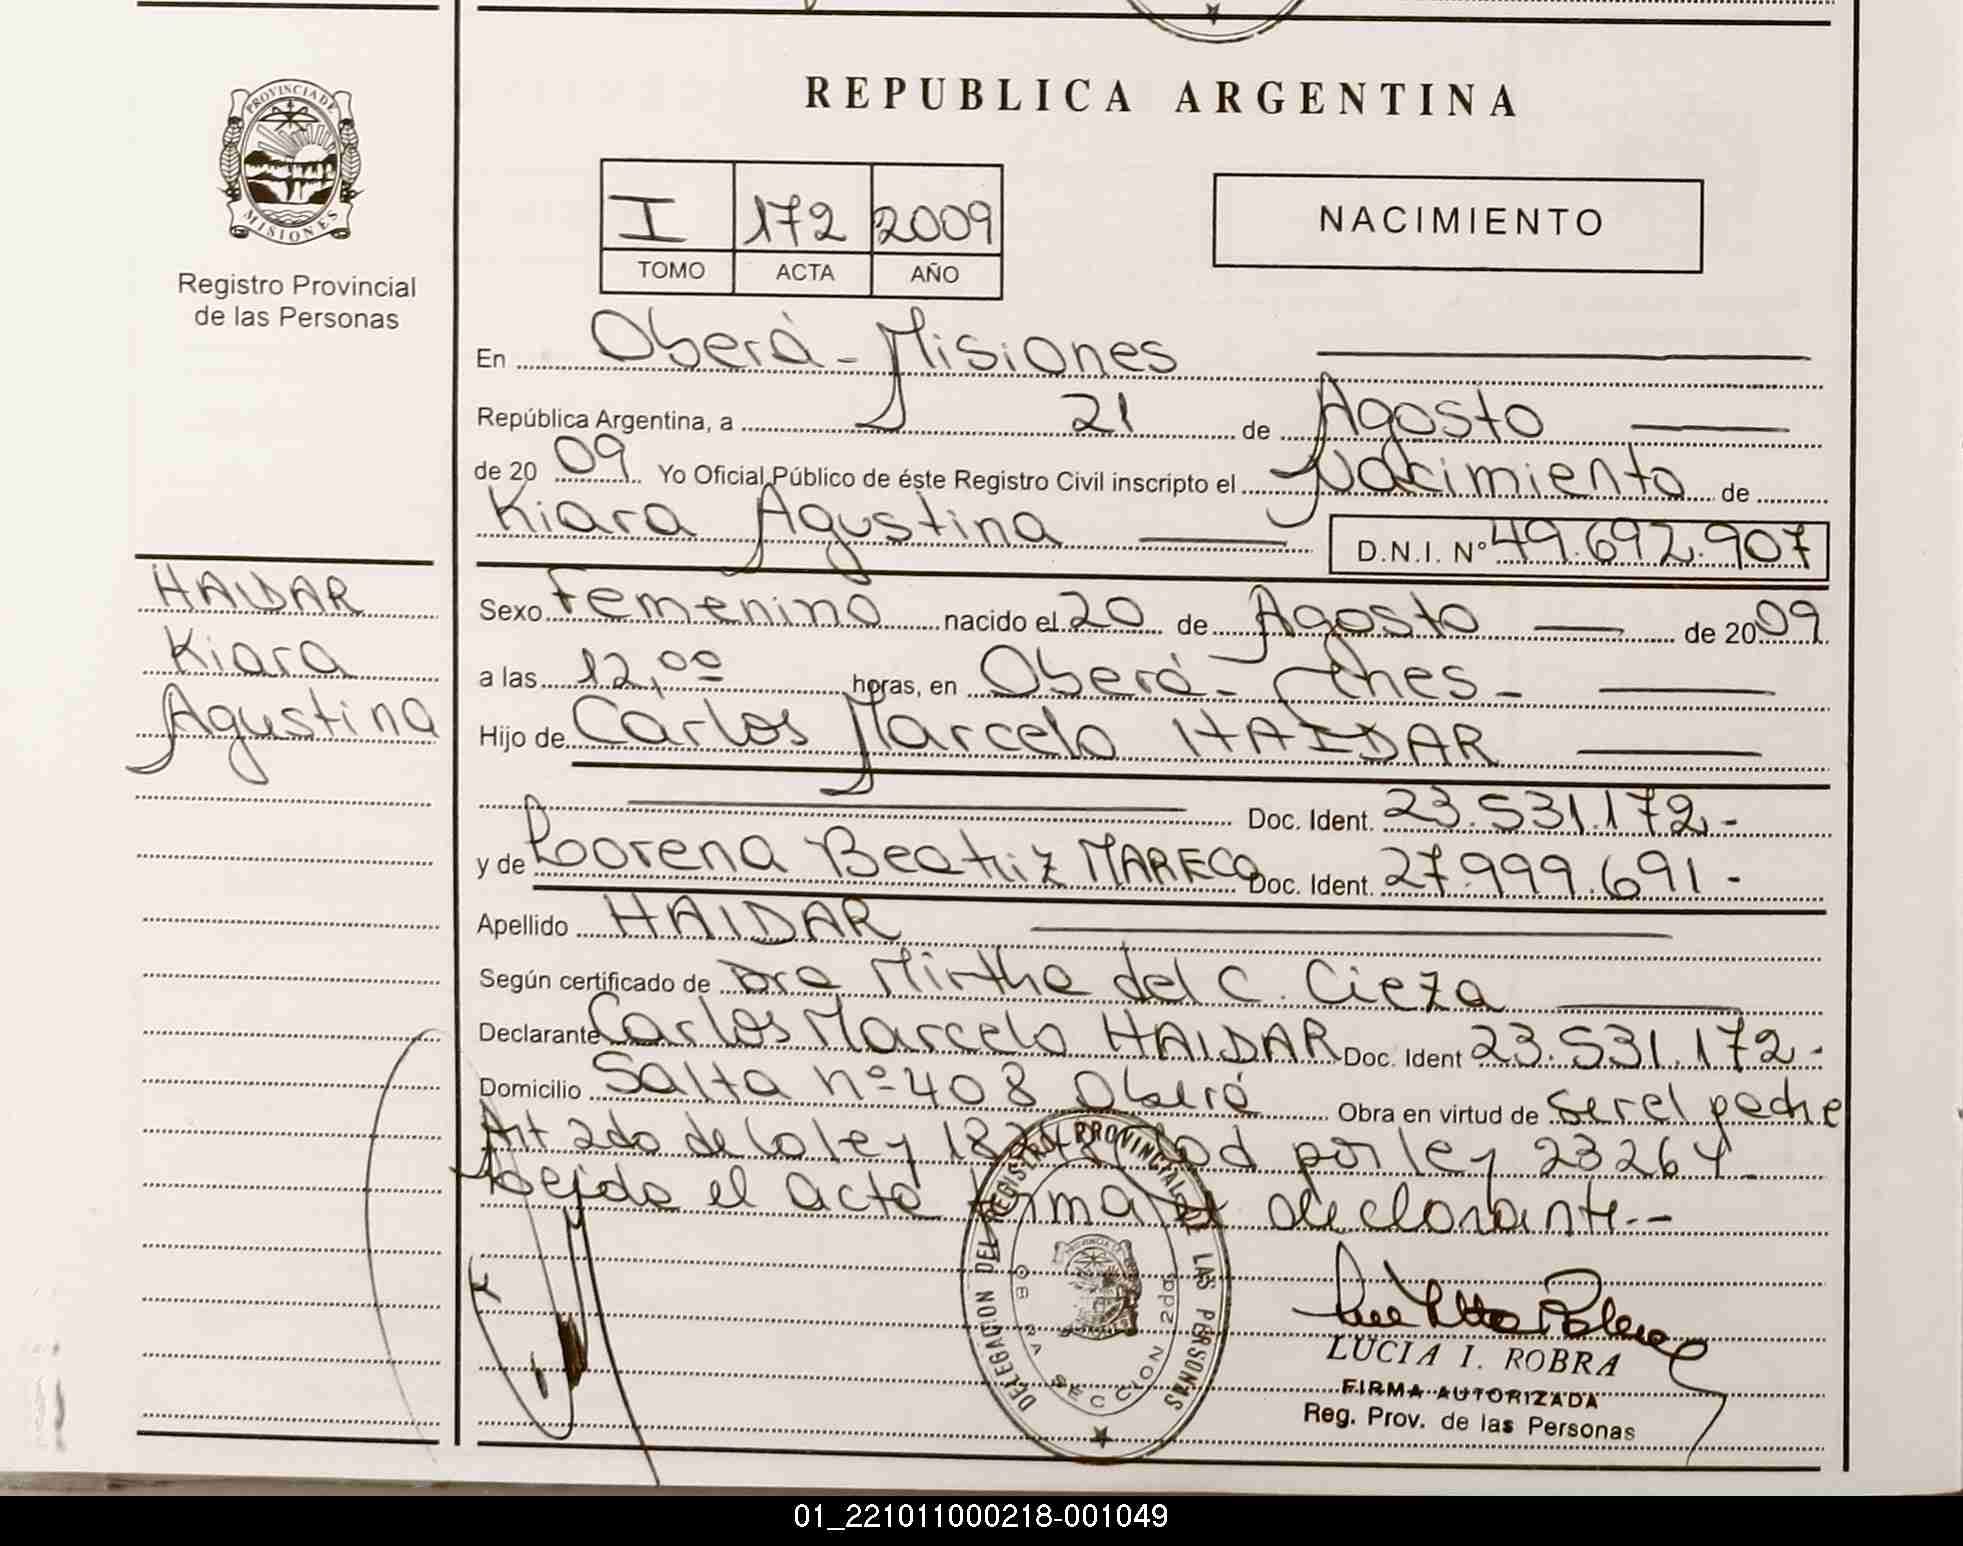 REPUBLICA ARGENTINA
PROVINCIA DE
MISIONES
Registro Provincial
de las Personas
I 172 2009
TOMO ACTA AÑO
NACIMIENTO
En Oberá - Misiones
República Argentina, a 21 de Agosto
de 2009 Yo Oficial Público de éste Registro Civil inscripto el Nacimiento de
Kiara Agustina D.N.I. Nº 49.692.907
HAIDAR
Kiara
Agustina
Sexo Femenino nacido el 20 de Agosto de 2009
a las 12,00 horas, en Oberá - Mnes -
Hijo de Carlos Marcelo HAIDAR
Doc. Ident. 23.531.172.-
y de Lorena Beatriz MARECO Doc. Ident. 27.999.691.-
Apellido HAIDAR
Según certificado de Dra Mirtha del C. Cieza
Declarante Carlos Marcelo HAIDAR Doc. Ident 23.531.172.-
Domicilio Salta nº 408 Oberá Obra en virtud de ser el padre
Art 2do de la ley mod por ley 23264
el acta firma el declarante.--
DELEGACION DEL REGISTRO PROVINCIAL DE LAS PERSONAS
OBERA SECCION 2da
LUCIA I. ROBRA
FIRMA AUTORIZADA
Reg. Prov. de las Personas
01_221011000218-001049